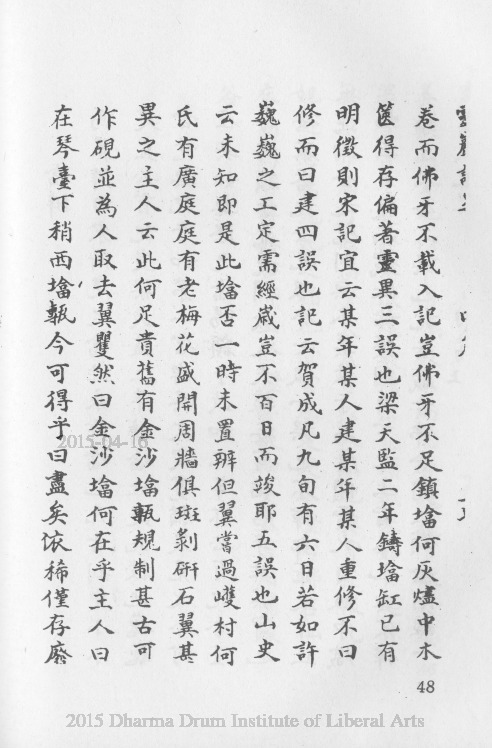 卷而佛牙不載入記豈佛牙不足鎮墖何灰燼中木
篋得存偏著靈異三誤也梁天監二年鑄墖缸已有
明徵則宋記宜云某年某人建某年某人重修不曰
修而曰建四誤也記云賀成凡九旬有六日若如許
巍巍之工定需經歲豈不百日而竣耶五誤也山史
云未知即是此墖否一時未置辨但翼嘗過嶁村何
氏有廣庭庭有老梅花盛開周牆俱斑剝硏石翼甚
異之主人云此何足貴舊有金沙墖甎規制甚古可
作硯並為人取去翼瞿然曰金沙墖何在乎主人曰
在琴臺下稍西墖甎今可得乎曰盡矣依稀僅存廢
48
2015-04-16
2015 Dharma Drum Institute of Liberal Arts